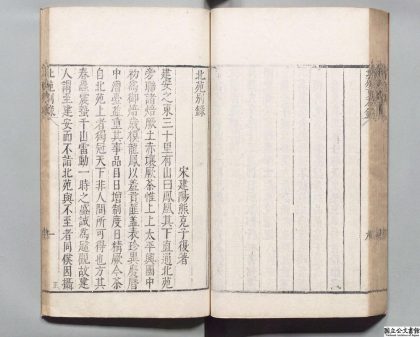 北苑別録
宋建陽熊克子復著
建安之東三十里有山曰鳳凰其下直通北苑
旁聯諸焙厥土赤壤厥茶惟上上太平興國中
初爲御焙歲模龍鳳以羞貢篚益表珍異慶曆
中漕臺益重其事品數日增制度日精厥今茶
自北苑上者獨冠天下非人間所可得也方其
春蟲震蟄千山雷動一時之盛誠爲偉觀故建
人謂至建安而不詣北苑與不至者同僕因攝
北苑別録
国立公文書館